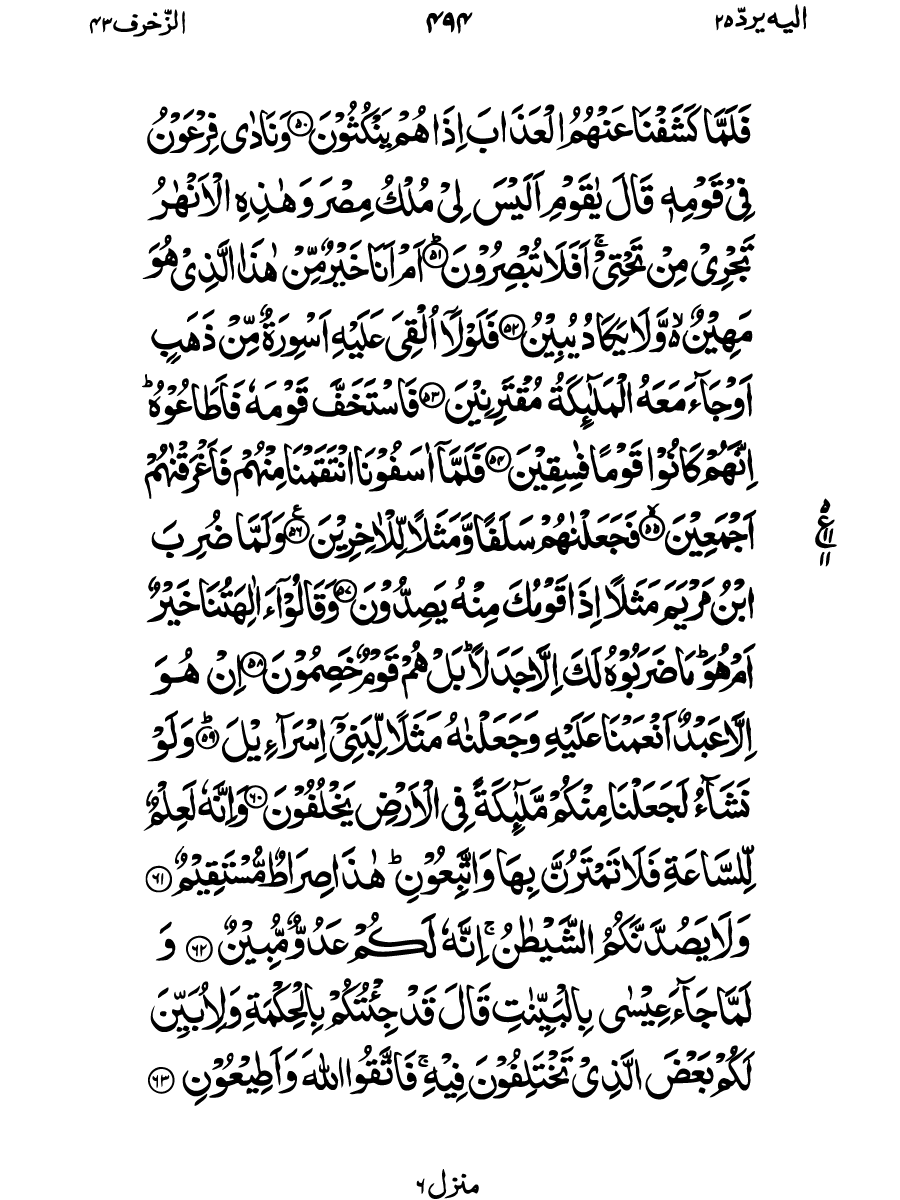 الیه یردّ ۲۵ ۴۹۴ الزّخرف ۴۳
فَلَمَّا كَشَفْنَا عَنْهُمُ الْعَذَابَ اِذَا هُمْ یَنْكُثُوْنَ ۵۰ وَ نَادٰى فِرْعَوْنُ
فِیْ قَوْمِهٖ قَالَ یٰقَوْمِ اَلَیْسَ لِیْ مُلْكُ مِصْرَ وَ هٰذِهِ الْاَنْهٰرُ
تَجْرِیْ مِنْ تَحْتِیْ ۚ اَفَلَا تُبْصِرُوْنَ ؕ ۵۱ اَمْ اَنَا خَیْرٌ مِّنْ هٰذَا الَّذِیْ هُوَ
مَهِیْنٌ ۙ۬ وَّ لَا یَكَادُ یُبِیْنُ ۵۲ فَلَوْلَاۤ اُلْقِیَ عَلَیْهِ اَسْوِرَةٌ مِّنْ ذَهَبٍ
اَوْ جَآءَ مَعَهُ الْمَلٰٓىِٕكَةُ مُقْتَرِنِیْنَ ۵۳ فَاسْتَخَفَّ قَوْمَهٗ فَاَطَاعُوْهُ ؕ
اِنَّهُمْ كَانُوْا قَوْمًا فٰسِقِیْنَ ۵۴ فَلَمَّاۤ اٰسَفُوْنَا انْتَقَمْنَا مِنْهُمْ فَاَغْرَقْنٰهُمْ
اَجْمَعِیْنَ ۙ ۵۵ فَجَعَلْنٰهُمْ سَلَفًا وَّ مَثَلًا لِّلْاٰخِرِیْنَ ۠ ۵۶ وَ لَمَّا ضُرِبَ
۵ ع ۱۱ ۱۱
ابْنُ مَرْیَمَ مَثَلًا اِذَا قَوْمُكَ مِنْهُ یَصِدُّوْنَ ۵۷ وَ قَالُوْۤا ءَاٰلِهَتُنَا خَیْرٌ
اَمْ هُوَ ؕ مَا ضَرَبُوْهُ لَكَ اِلَّا جَدَلًا ؕ بَلْ هُمْ قَوْمٌ خَصِمُوْنَ ۵۸ اِنْ هُوَ
اِلَّا عَبْدٌ اَنْعَمْنَا عَلَیْهِ وَ جَعَلْنٰهُ مَثَلًا لِّبَنِیْۤ اِسْرَآءِیْلَ ؕ ۵۹ وَ لَوْ
نَشَآءُ لَجَعَلْنَا مِنْكُمْ مَّلٰٓىِٕكَةً فِی الْاَرْضِ یَخْلُفُوْنَ ۶۰ وَ اِنَّهٗ لَعِلْمٌ
لِّلسَّاعَةِ فَلَا تَمْتَرُنَّ بِهَا وَ اتَّبِعُوْنِ ؕ هٰذَا صِرَاطٌ مُّسْتَقِیْمٌ ۶۱
وَ لَا یَصُدَّنَّكُمُ الشَّیْطٰنُ ۚ اِنَّهٗ لَكُمْ عَدُوٌّ مُّبِیْنٌ ۶۲ وَ
لَمَّا جَآءَ عِیْسٰى بِالْبَیِّنٰتِ قَالَ قَدْ جِئْتُكُمْ بِالْحِكْمَةِ وَ لِاُبَیِّنَ
لَكُمْ بَعْضَ الَّذِیْ تَخْتَلِفُوْنَ فِیْهِ ۚ فَاتَّقُوا اللّٰهَ وَ اَطِیْعُوْنِ ۶۳
منزل ۶